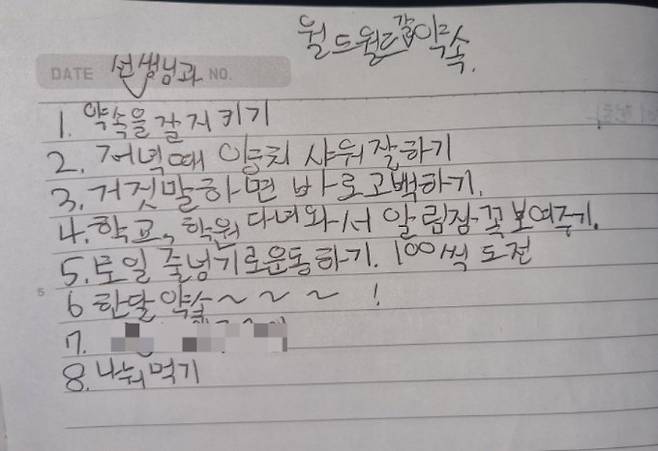 월드월드갈약속.
DATE 선생님과 NO.
1. 약속을 잘 지키기
2. 저녁때 양치 샤워 잘하기
3. 거짓말하면 바로 고백하기.
4. 학교, 학원 다녀와서 알림장 꼭 보여주기.
5. 토일 줄넘기로 운동하기. 100씩 도전
6 한달 약속~~~ !
7.
8. 나눠 먹기